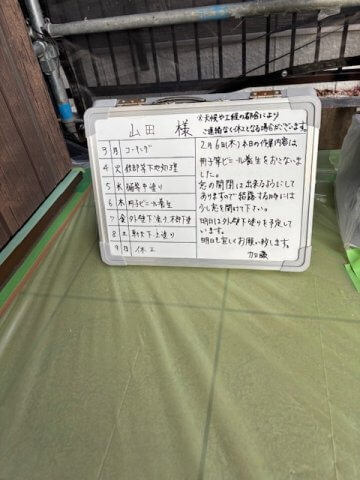 山田 様
※天候や工程の都合により
ご連絡なく休工となる場合がございます。
3 月 コーキング
4 火 鉄部等下地処理
5 水 破風等塗り
6 木 用子ビニール養生
7 金 外壁下塗り、木部下塗
8 土 軒天下上塗り
9 日 休工
2月6日(木)本日の作業内容は
用子等ビニール養生をおこないま
した。
窓の開閉は出来るようにして
ありますので結露する時には
少し窓を開けて下さい。
明日は外壁下塗りを予定して
います。
明日も宜しくお願い致します。
加藤